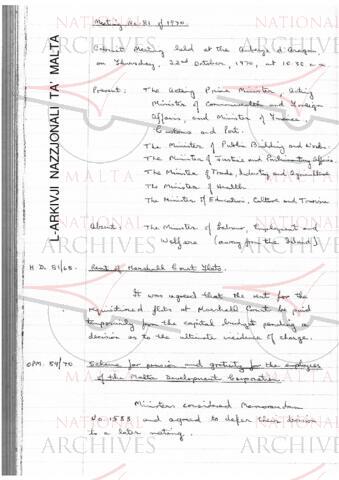 Meeting No. 81 of 1970.
Cabinet Meeting held at the Auberge d'Aragon,
on Thursday, 22nd October, 1970, at 10.30 a.m.
Present : The Acting Prime Minister, Acting
Minister of Commonwealth and Foreign
Affairs, and Minister of Finance,
Customs and Port.
The Minister of Public Building and Works.
The Minister of Justice and Parliamentary Affairs
The Minister of Trade, Industry and Agriculture
The Minister of Health
The Minister of Education, Culture and Tourism
Absent : The Minister of Labour, Employment and
Welfare (away from the Island)
H.D. 51/68. Rent of Marshall Court Flats.
It was agreed that the rent for the
requisitioned flats at Marshall Court be paid
temporarily from the capital budget pending a
decision as to the ultimate incidence of charge.
OPM. 54/70 Scheme for pension and gratuity for the employees
of the Malta Development Corporation
Ministers considered Memorandum
No. 1583 and agreed to defer their decision
to a later meeting.
L-ARKIVJI NAZZJONALI TA' MALTA
NATIONAL
ARCHIVES
MALTA